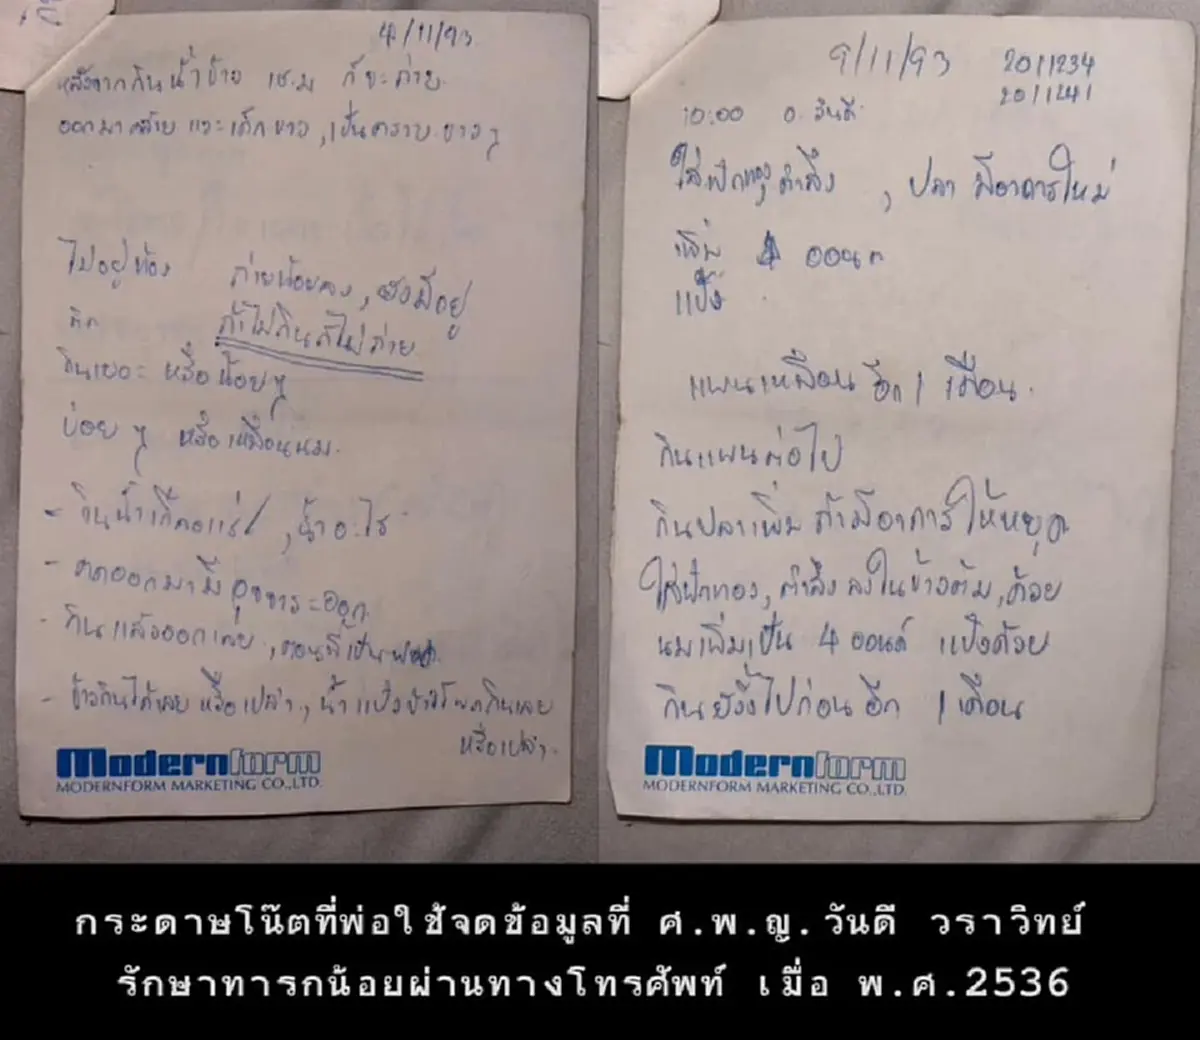 4/11/93
หลังจากกินน้ำข้าว ๒ช.ม ก็จะถ่าย
ออกมาคล้าย แจะเด็กขาว, เป็นคราบขาวๆ
ไม่อยู่ท้อง ถ่ายน้อยลง, ยังมีอยู่
ถ้าไม่กินก็ไม่ถ่าย
กินเยอะ หรือน้อยๆ
บ่อยๆ หรือเหมือนนม.
- กินน้ำเกลือแร่, น้ำอะไร
- ตดออกมามีอุจจาระออก
- กินแล้วออกเลย,
- ข้าวกินได้เลย หรือเปล่า, น้ำ แป้งข้าวโพดกินเลย
หรือเปล่า.
Modernform
MODERNFORM MARKETING CO.,LTD.
9/11/93 2011234
2011241
10:00 อ.วันดี
ใส่ฟักทอง, ตำลึง, ปลา มีอาการใหม่
เพิ่ม 4 ออนซ์
แป้ง
แพนเหมือน อีก 1 เดือน.
กินแพนต่อไป
กินปลาเพิ่ม ถ้ามีอาการให้หยุด
ใส่ฟักทอง, ตำลึง ลงในข้าวต้ม, ด้วย
นมเพิ่มเป็น 4 ออนซ์ แป้งด้วย
กินยังงี้ไปก่อน อีก 1 เดือน
Modernform
MODERNFORM MARKETING CO.,LTD.
กระดาษโน๊ตที่พ่อใช้จดข้อมูลที่ ศ.พ.ญ.วันดี วราวิทย์
รักษาทารกน้อยผ่านทางโทรศัพท์ เมื่อ พ.ศ.2536